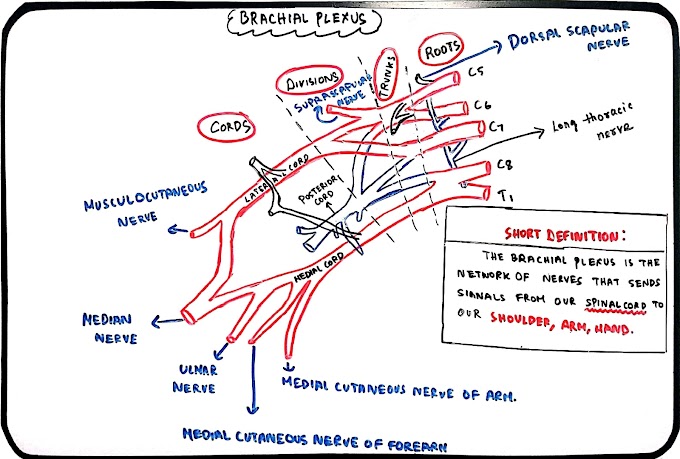 BRACHIAL PLEXUS
ROOTS
DORSAL SCAPULAR
NERVE
TRUNKS
DIVISIONS
SUPRASCAPULAR
NERVE
CORDS
C5
C6
C7
C8
T1
Long thoracic
nerve
LATERAL CORD
POSTERIOR
CORD
MEDIAL CORD
MUSCULOCUTANEOUS
NERVE
MEDIAN
NERVE
ULNAR
NERVE
MEDIAL CUTANEOUS NERVE OF ARM.
MEDIAL CUTANEOUS NERVE OF FOREARM
SHORT DEFINITION:
THE BRACHIAL PLEXUS IS THE
NETWORK OF NERVES THAT SENDS
SIGNALS FROM OUR SPINAL CORD TO
OUR SHOULDER, ARM, HAND.